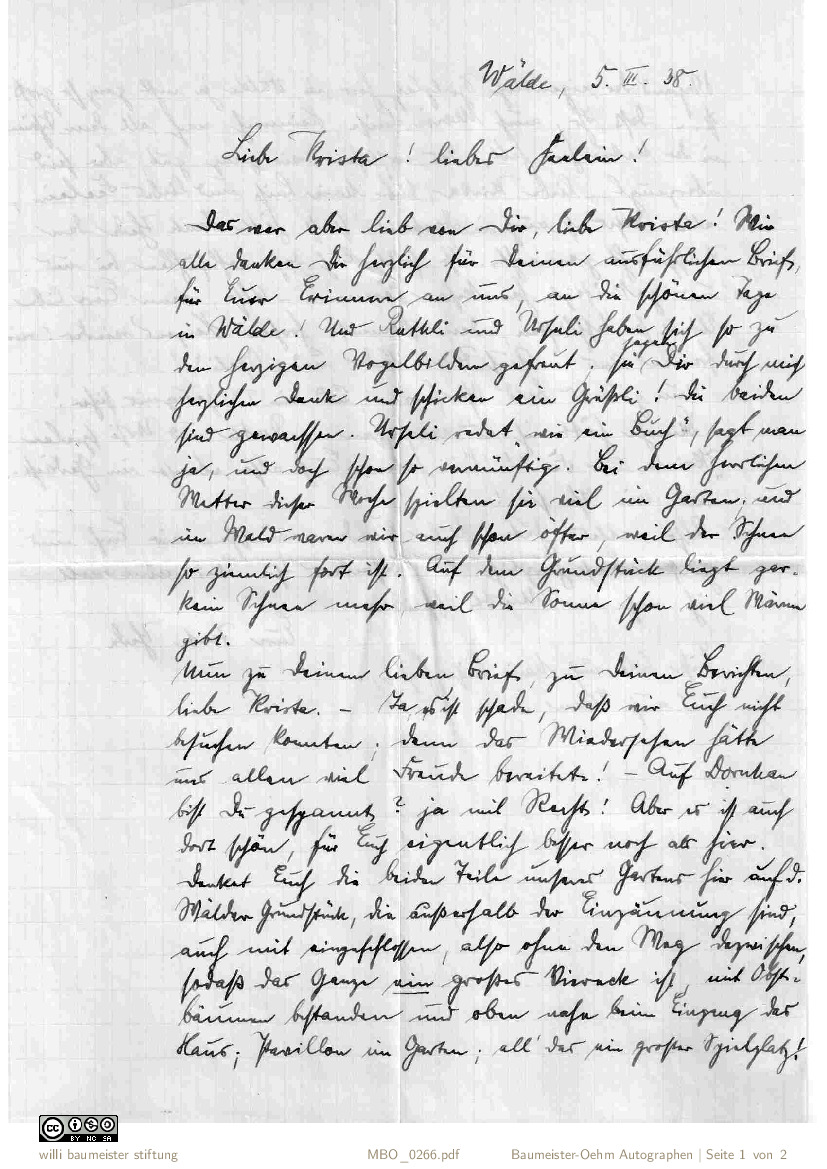 Wälde, 5. III. 38.
Liebe Krista! liebes Feelein!
Das war aber lieb von Dir, liebe Krista! Wir
alle danken Dir herzlich für Deinen ausführlichen Brief,
für Euer Erinnern an uns, an die schönen Tage
in Wälde! Und Ruthli und Urseli haben sich so zu
den herzigen Vogelbildern gefreut. Sie sagen Dir durch mich
herzlichen Dank und schicken ein Grüßli! Die beiden
sind gewachsen. Urseli redet „wie ein Buch", sagt man
ja, und doch schon so vernünftig. Bei dem herrlichen
Wetter dieser Woche spielten sie viel im Garten, und
im Wald waren wir auch schon öfter, weil der Schnee
so ziemlich fort ist. Auf dem Grundstück liegt gar-
kein Schnee mehr weil die Sonne schon viel Wärme
gibt.
Nun zu Deinem lieben Brief, zu Deinen Berichten,
liebe Krista. – Ja, es ist schade, daß wir Euch nicht
besuchen konnten; denn das Wiedersehen hätte
uns allen viel Freude bereitet! – Auf Dornhan
bist Du gespannt? ja mit Recht! Aber es ist auch
dort schön, für Euch eigentlich besser noch als hier.
Denket Euch die beiden Teile unseres Gartens hier auf d.
Wälder Grundstück, die außerhalb der Einzäunung sind,
auch mit eingeschlossen, also ohne den Weg dazwischen,
sodaß das Ganze ein großes Viereck ist, mit Obst-
bäumen bestanden und oben nahe beim Eingang das
Haus; Pavillon im Garten; all' das ein großer Spielplatz!
CC BY NC SA
willi baumeister stiftung
MBO_0266.pdf
Baumeister-Oehm Autographen | Seite 1 von 2